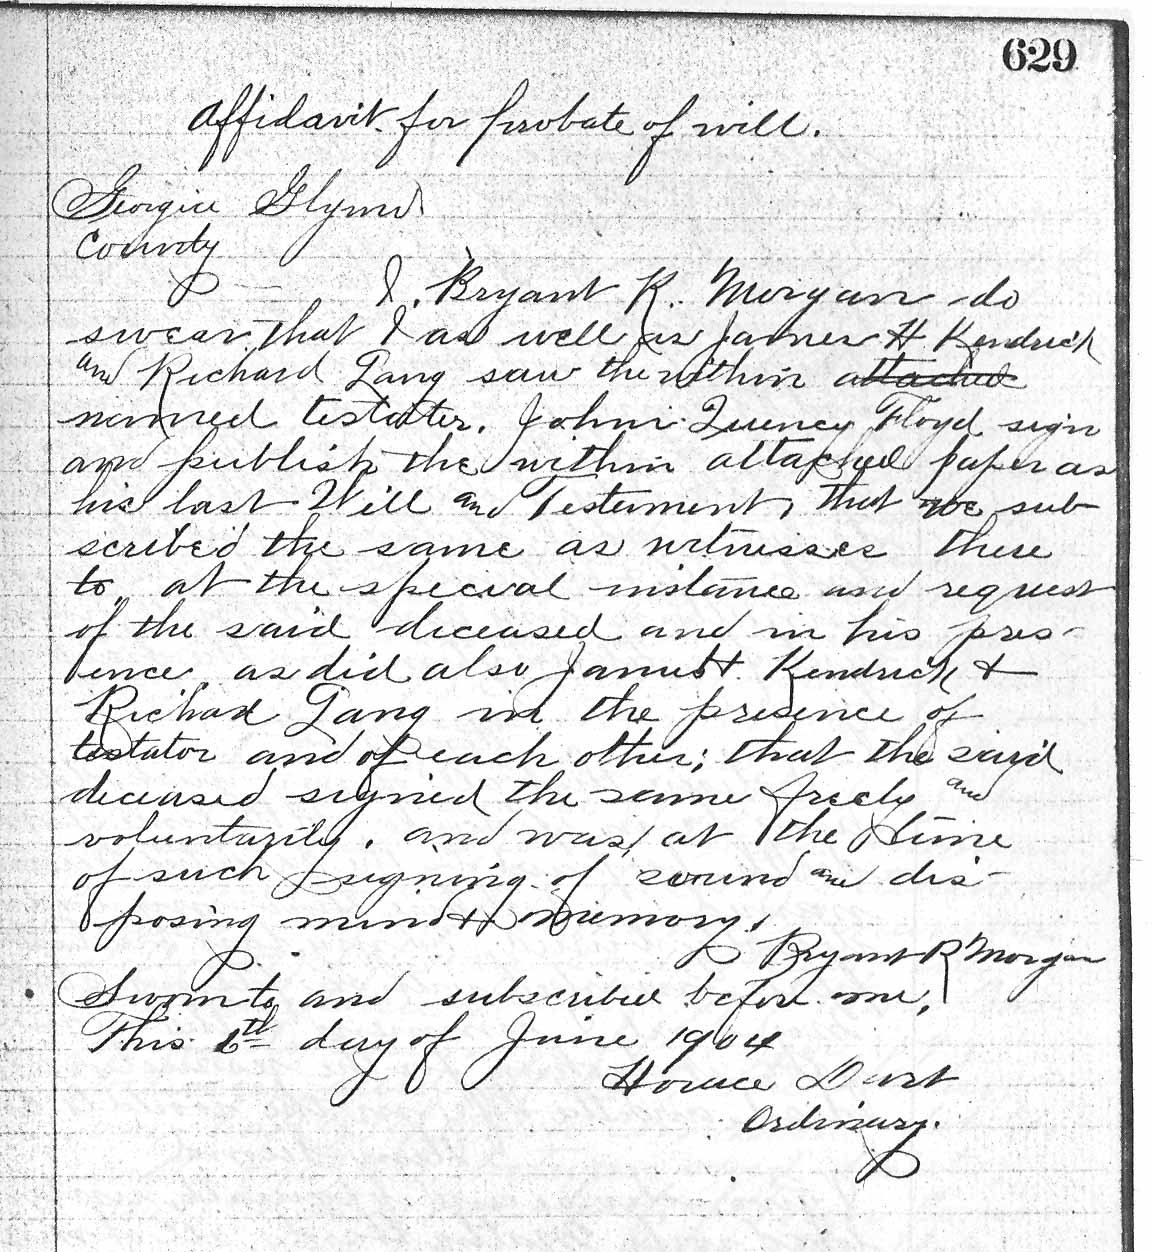 629
Affidavit for probate of will.
Georgia Glynn
County
I, Bryant K. Morgan do
swear that I as well as James H Kendrick
and Richard Lang saw the within attached
named testater. John Quency Floyd sign
and publish the within attached paper as
his last Will and Testament, that we sub
scribed the same as witnesses there
to, at the special instance and request
of the said deceased and in his pres-
ence, as did also James H. Kendrick +
Richard Lang in the presence of
testator and of each other; that the said
deceased signed the same freely and
voluntarily. and was at the time
of such signing of sound and dis-
posing mind + memory.
Bryant K Morgan
Sworn to and subscribed before me,
This 6th day of June 1904
Horace Dart
Ordinary.